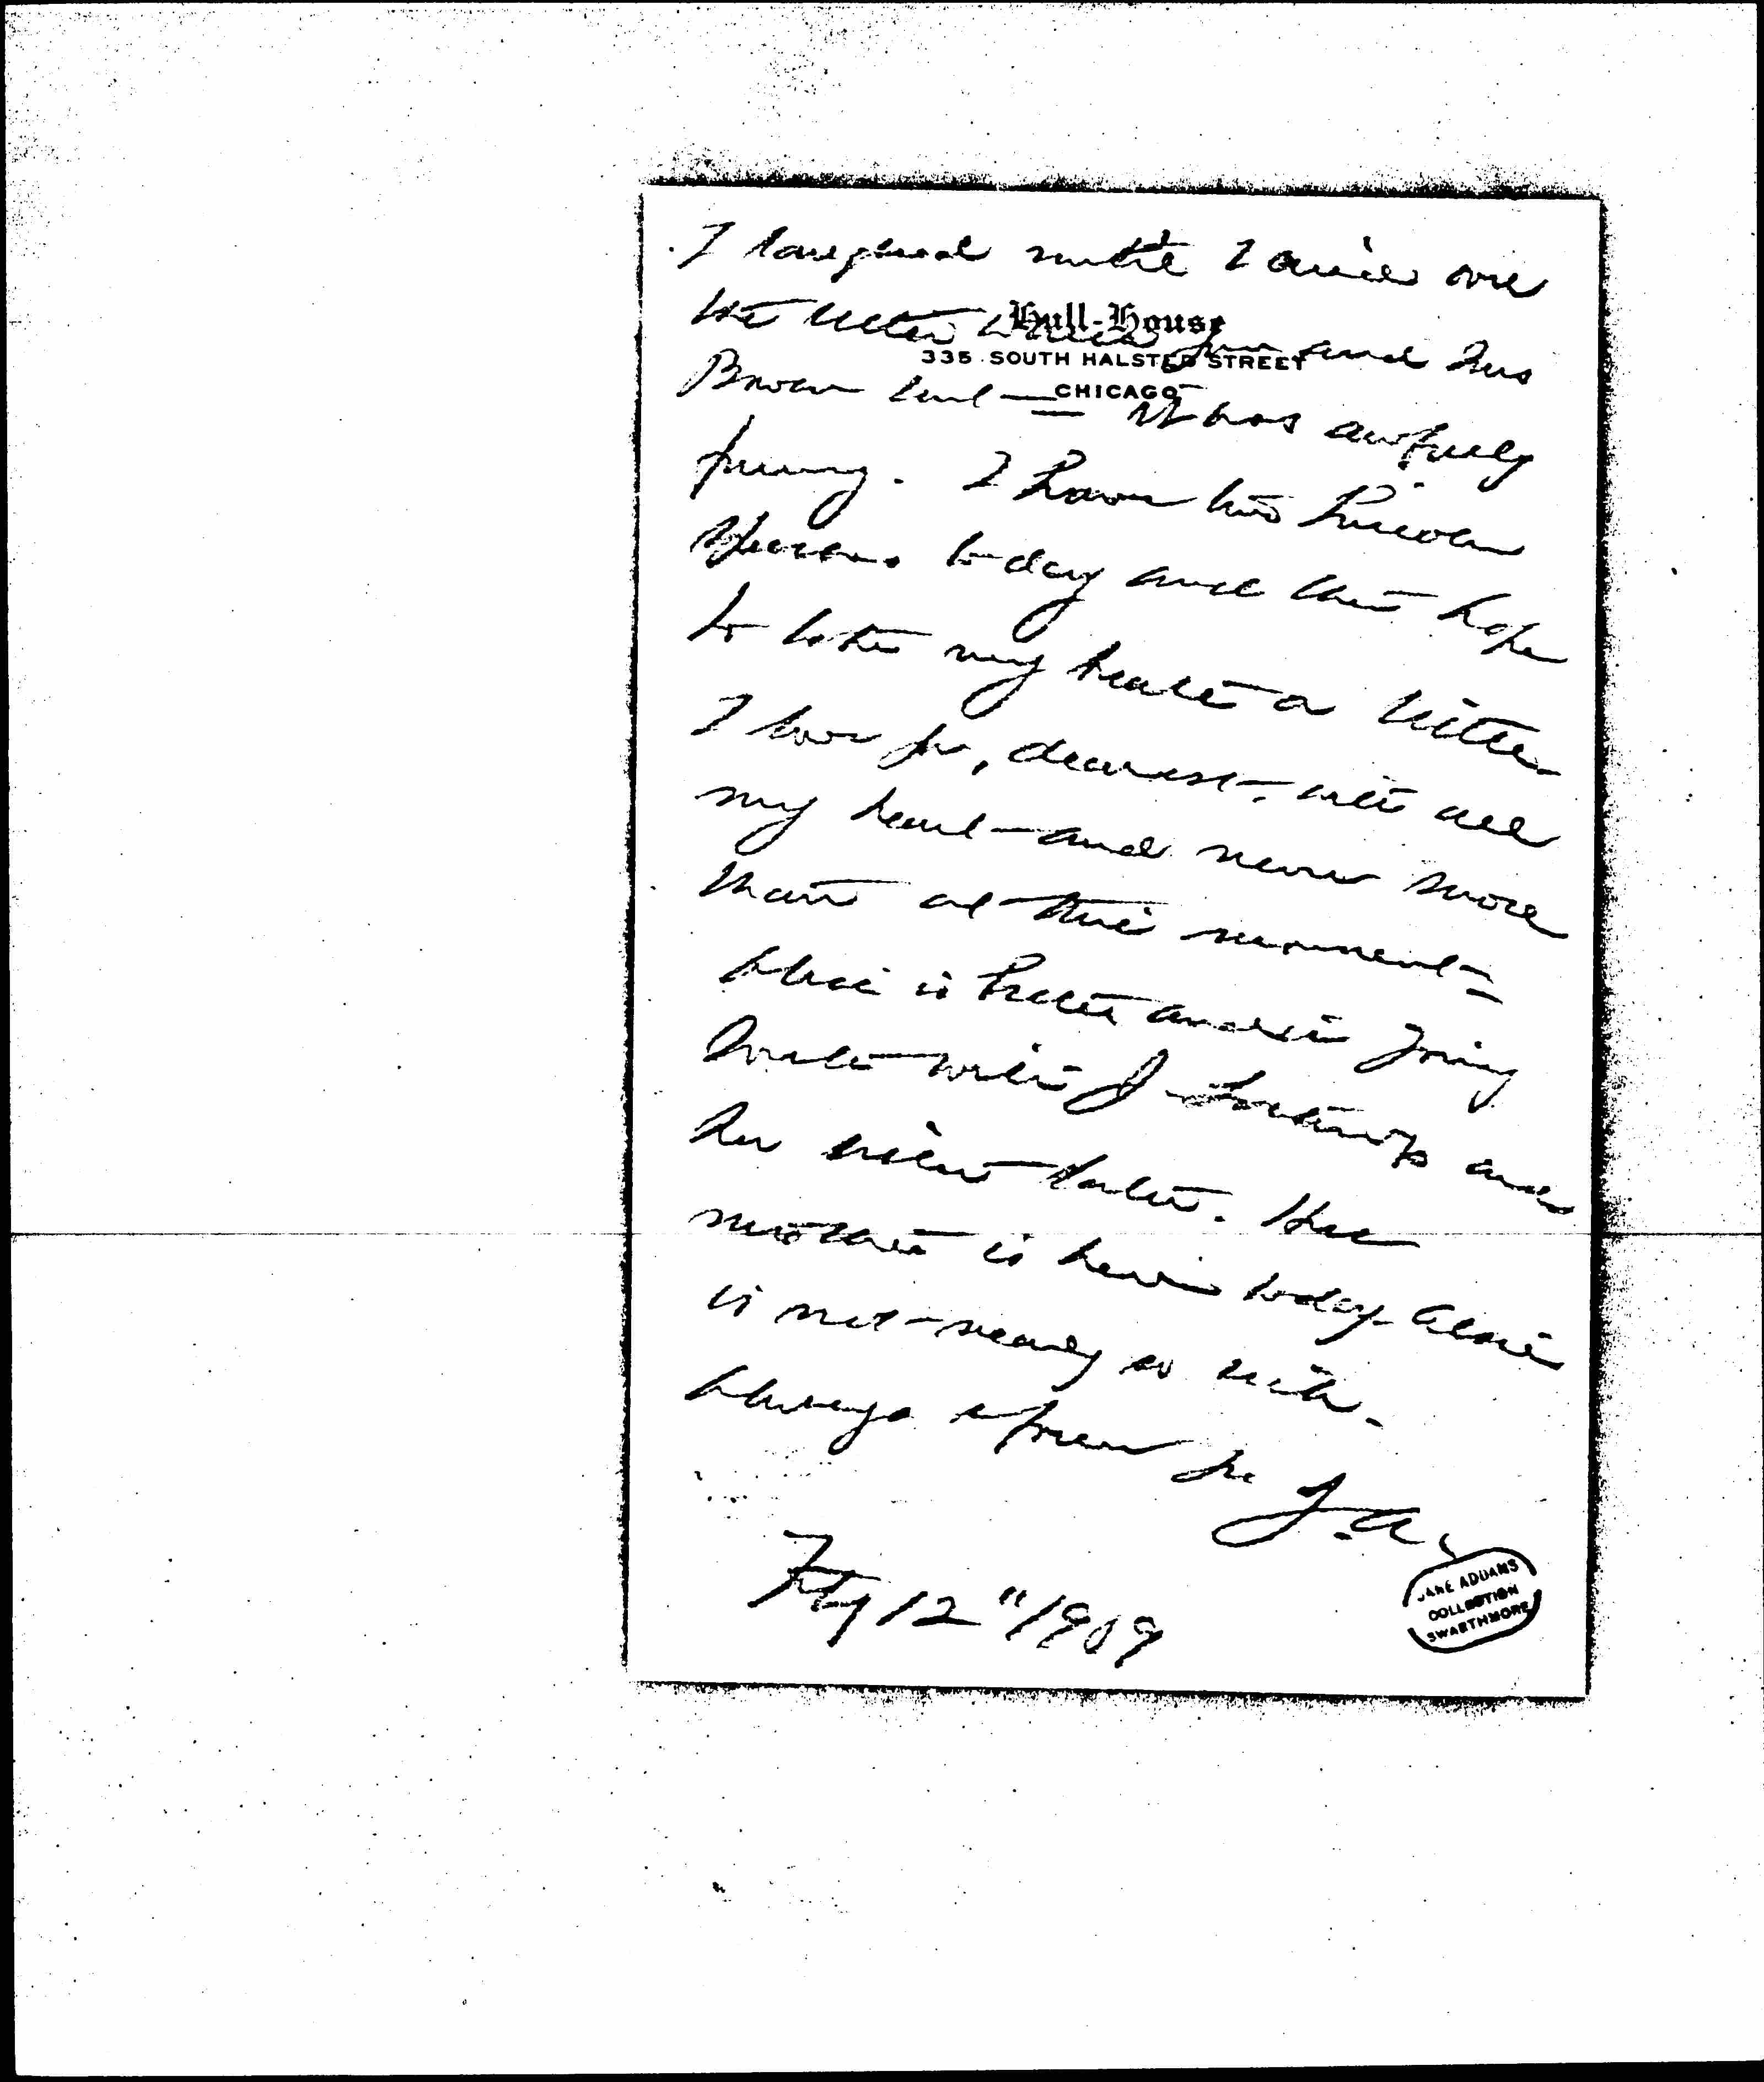 I laughed until I cried over
Hull-House
the letter which you and Mrs
335 SOUTH HALSTED STREET
Bowen sent — It was awfully
CHICAGO
funny. I have two Lincoln
speeches today and then hope
to take my health a little
I love you, dearest, with all
my heart — and never more
than at this moment —
Alice is better and is going
South with J. and
her sister later. Her
mother is here today. Alice
is not nearly so well.
Always yours J.A.
Feby 12" 1909
JANE ADDAMS
COLLECTION
SWARTHMORE